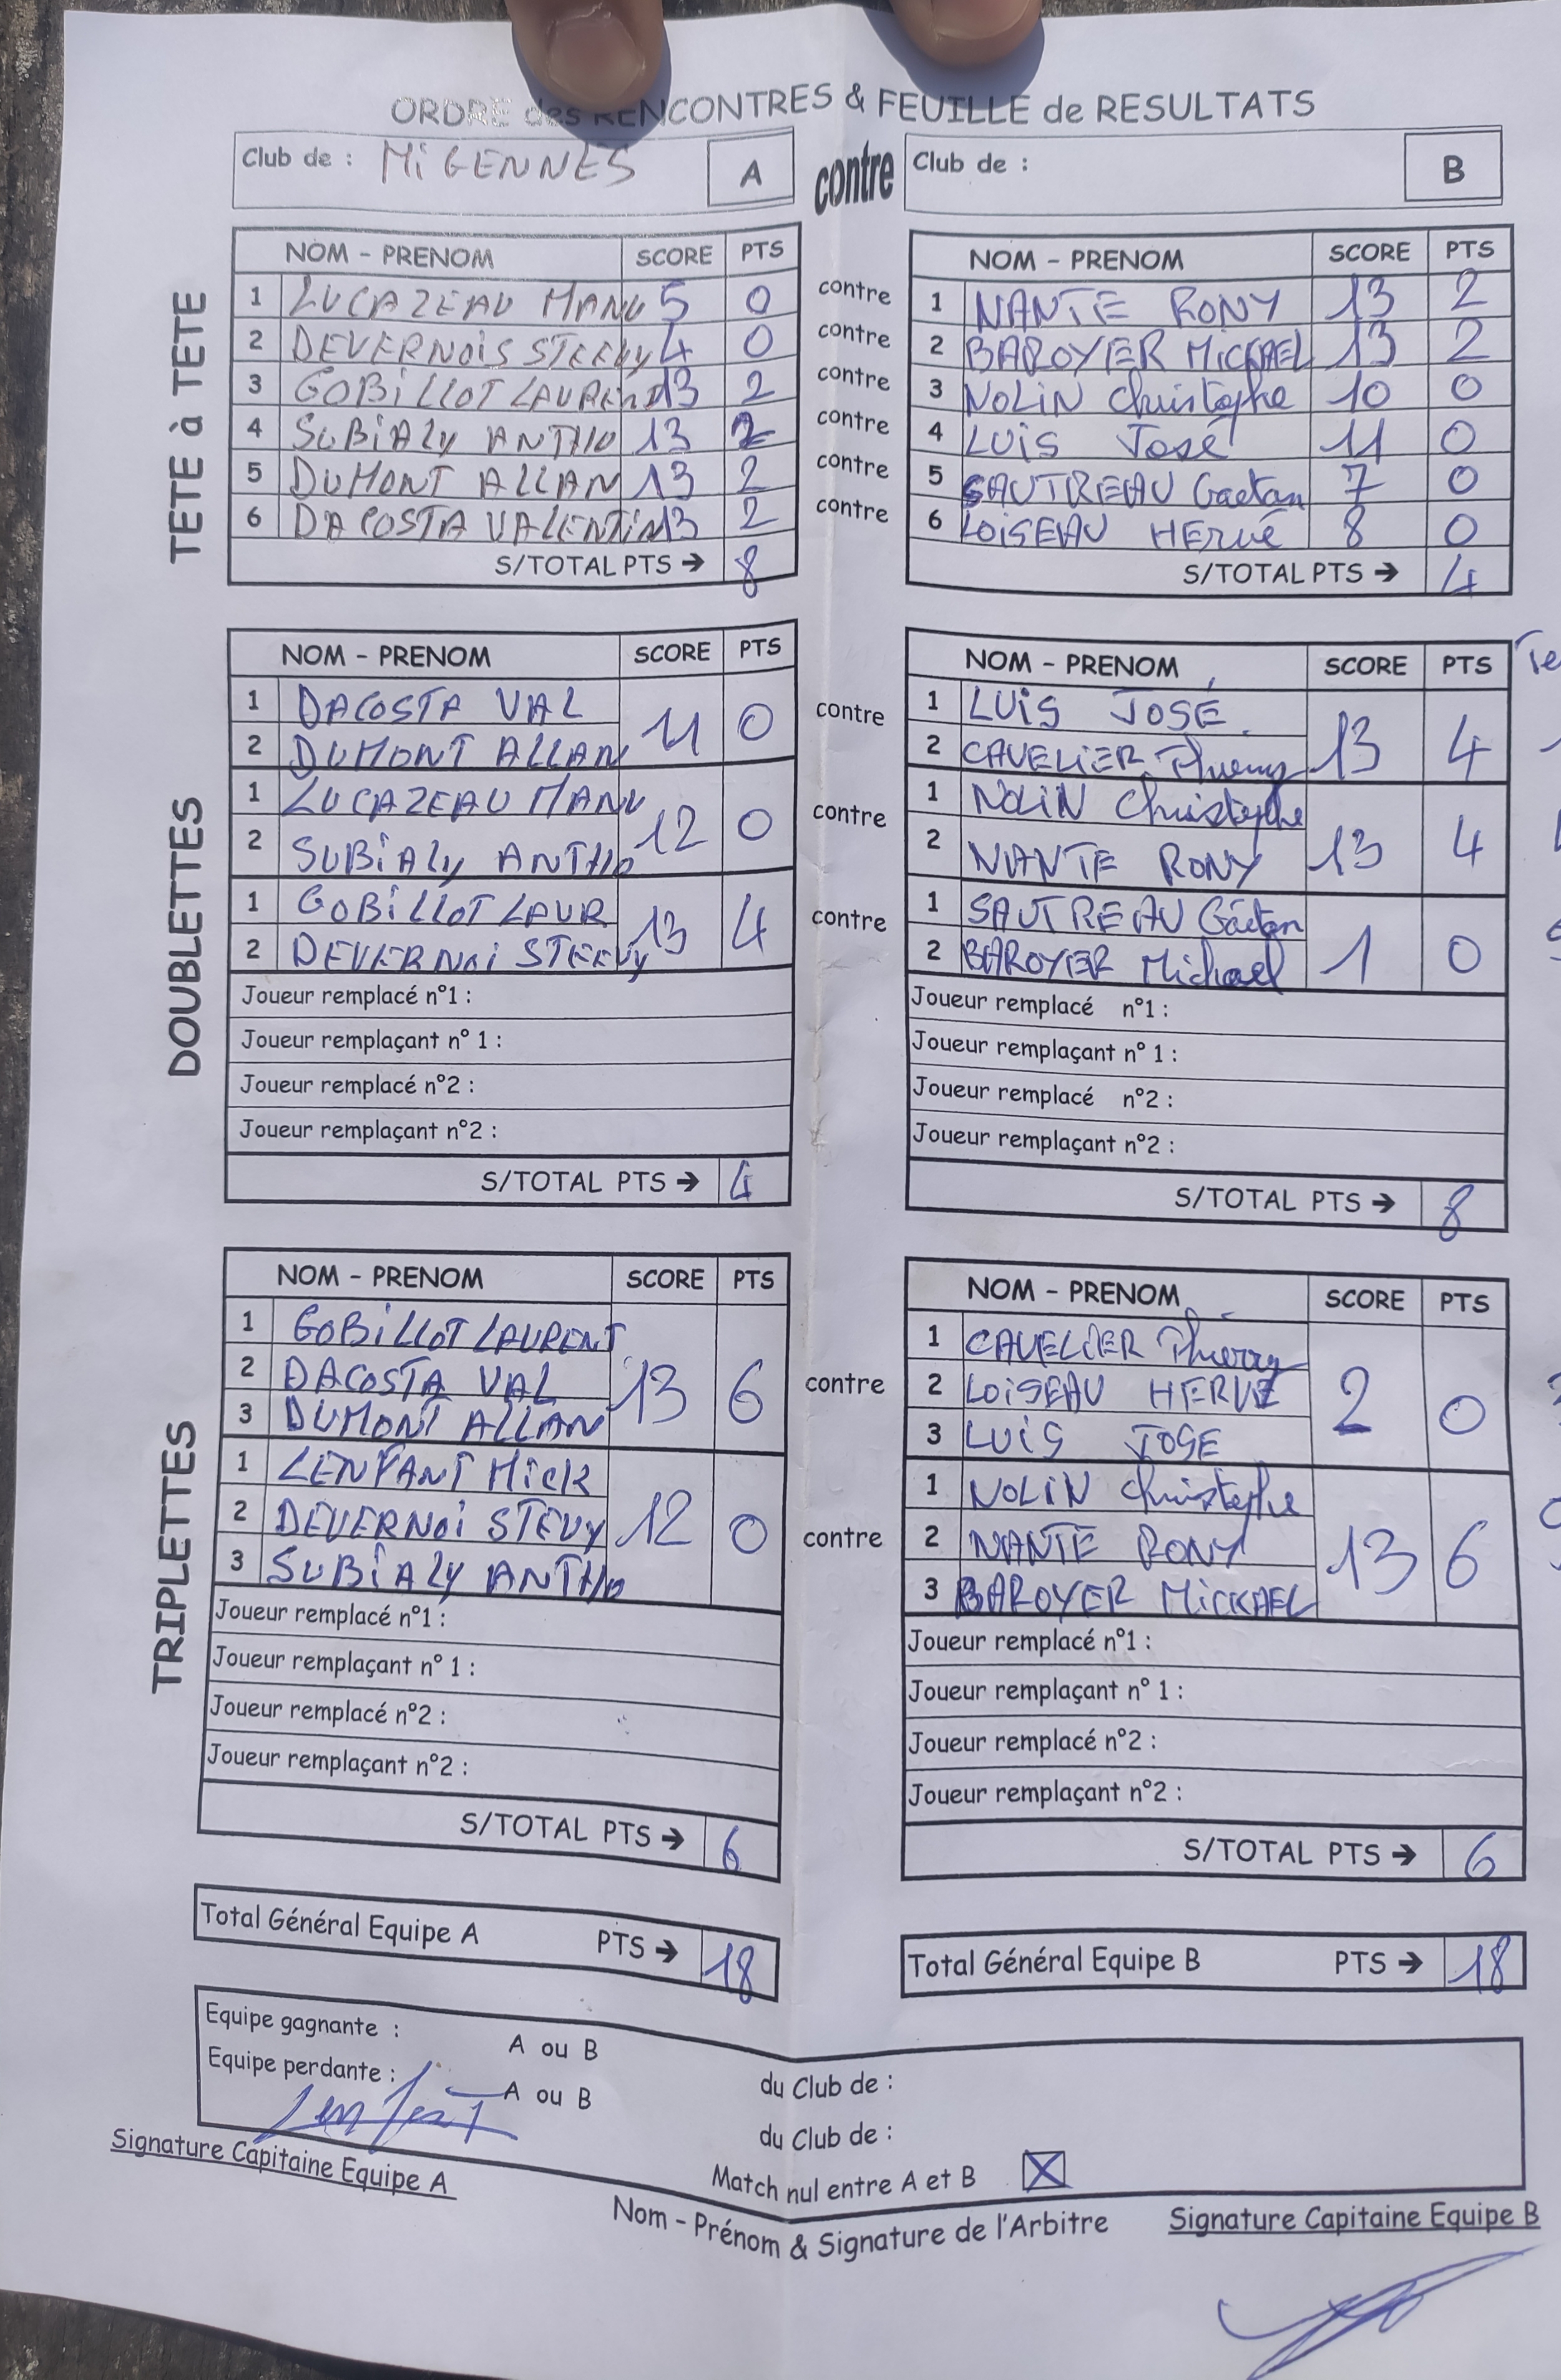 ORDRE des RENCONTRES & FEUILLE de RESULTATS
Club de : MIGENNES A contre Club de : B
TETE à TETE
NOM - PRENOM SCORE PTS NOM - PRENOM SCORE PTS
1 LUCAZEAU MANU 5 0 contre 1 NANTE RONY 13 2
2 DEVERNOIS STEEVY 4 0 contre 2 BAROYER MICKAEL 13 2
3 GOBILLOT LAURENT 13 2 contre 3 NOLIN Christophe 10 0
4 SUBIALY ANTHO 13 2 contre 4 LUIS José 11 0
5 DUMONT ALLAN 13 2 contre 5 SAUTREAU Gaetan 7 0
6 DACOSTA VALENTIN 13 2 contre 6 LOISEAU HERVé 8 0
S/TOTAL PTS → 8 S/TOTAL PTS → 4
DOUBLETTES
NOM - PRENOM SCORE PTS NOM - PRENOM SCORE PTS
1 DACOSTA VAL 11 0 contre 1 LUIS JOSÉ 13 4
2 DUMONT ALLAN 2 CAVELIER Thierry
1 LUCAZEAU MANU 12 0 contre 1 NOLIN Christophe 13 4
2 SUBIALY ANTHO 2 NANTE RONY
1 GOBILLOT LAUR 13 4 contre 1 SAUTREAU Gaëtan 1 0
2 DEVERNOI STEEVY 2 BAROYER Michael
Joueur remplacé n°1 : Joueur remplacé n°1 :
Joueur remplaçant n° 1 : Joueur remplaçant n° 1 :
Joueur remplacé n°2 : Joueur remplacé n°2 :
Joueur remplaçant n°2 : Joueur remplaçant n°2 :
S/TOTAL PTS → 4 S/TOTAL PTS → 8
TRIPLETTES
NOM - PRENOM SCORE PTS NOM - PRENOM SCORE PTS
1 GOBILLOT LAURENT 13 6 contre 1 CAVELIER Thierry 2 0
2 DACOSTA VAL 2 LOISEAU HERVE
3 DUMONT ALLAN 3 LUIS JOSE
1 LENFANT MICK 12 0 contre 1 NOLIN Christophe 13 6
2 DEVERNOI STEVY 2 NANTE RONY
3 SUBIALY ANTHO 3 BAROYER MICKAEL
Joueur remplacé n°1 : Joueur remplacé n°1 :
Joueur remplaçant n° 1 : Joueur remplaçant n° 1 :
Joueur remplacé n°2 : Joueur remplacé n°2 :
Joueur remplaçant n°2 : Joueur remplaçant n°2 :
S/TOTAL PTS → 6 S/TOTAL PTS → 6
Total Général Equipe A PTS → 18 Total Général Equipe B PTS → 18
Equipe gagnante : A ou B du Club de :
Equipe perdante : A ou B du Club de :
Match nul entre A et B X
Signature Capitaine Equipe A Nom - Prénom & Signature de l'Arbitre Signature Capitaine Equipe B